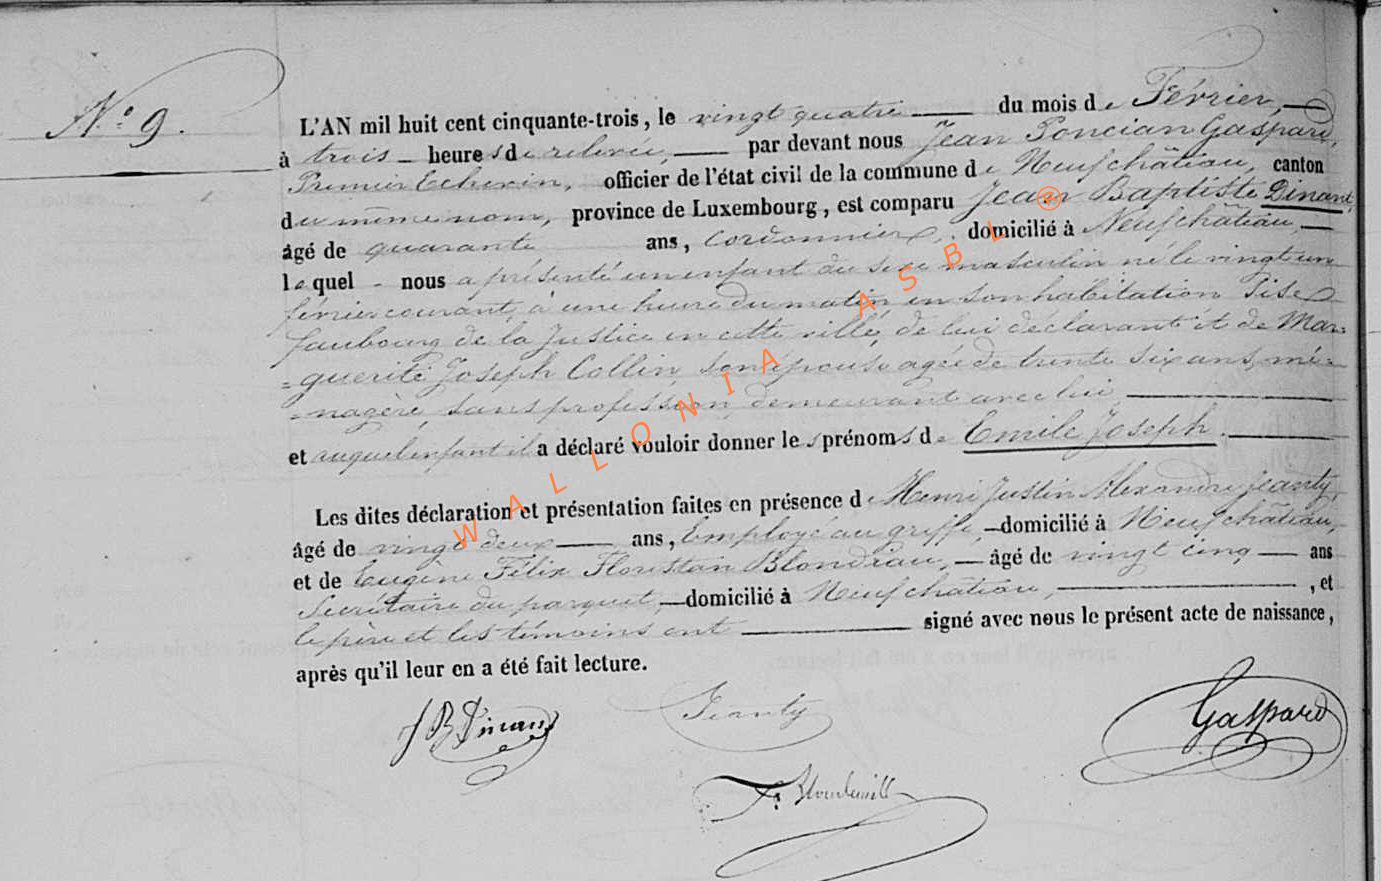 N.° 9.
L'AN mil huit cent cinquante-trois, le vingt quatre du mois de Février,
à trois heures de relevée, par devant nous Jean Poncian Gaspard,
Premier Echevin, officier de l'état civil de la commune de Neufchâteau, canton
du même nom, province de Luxembourg, est comparu Jean Baptiste Dinant,
âgé de quarante ans, cordonnier, domicilié à Neufchâteau,
lequel nous a présenté un enfant du sexe masculin né le vingt un
février courant, à une heure du matin en son habitation sise
faubourg de la Justice en cette ville, de lui déclarant et de Mar-
-guerite Joseph Collin, son épouse agée de trente six ans, mé-
-nagère, sans profession, demeurant avec lui,
et auquel enfant il a déclaré vouloir donner les prénoms de Emile Joseph.
Les dites déclaration et présentation faites en présence de Henri Justin Alexandre Jeanty,
âgé de vingt deux ans, Employé au greffe, domicilié à Neufchâteau,
et de Eugène Félix Floristan Blondiau, âgé de vingt cinq ans
Secrétaire du parquet, domicilié à Neufchâteau, , et
le père et les témoins ont signé avec nous le présent acte de naissance,
après qu'il leur en a été fait lecture.
J B Dinant
Jeanty
Gaspard
WALLONIA ASBL